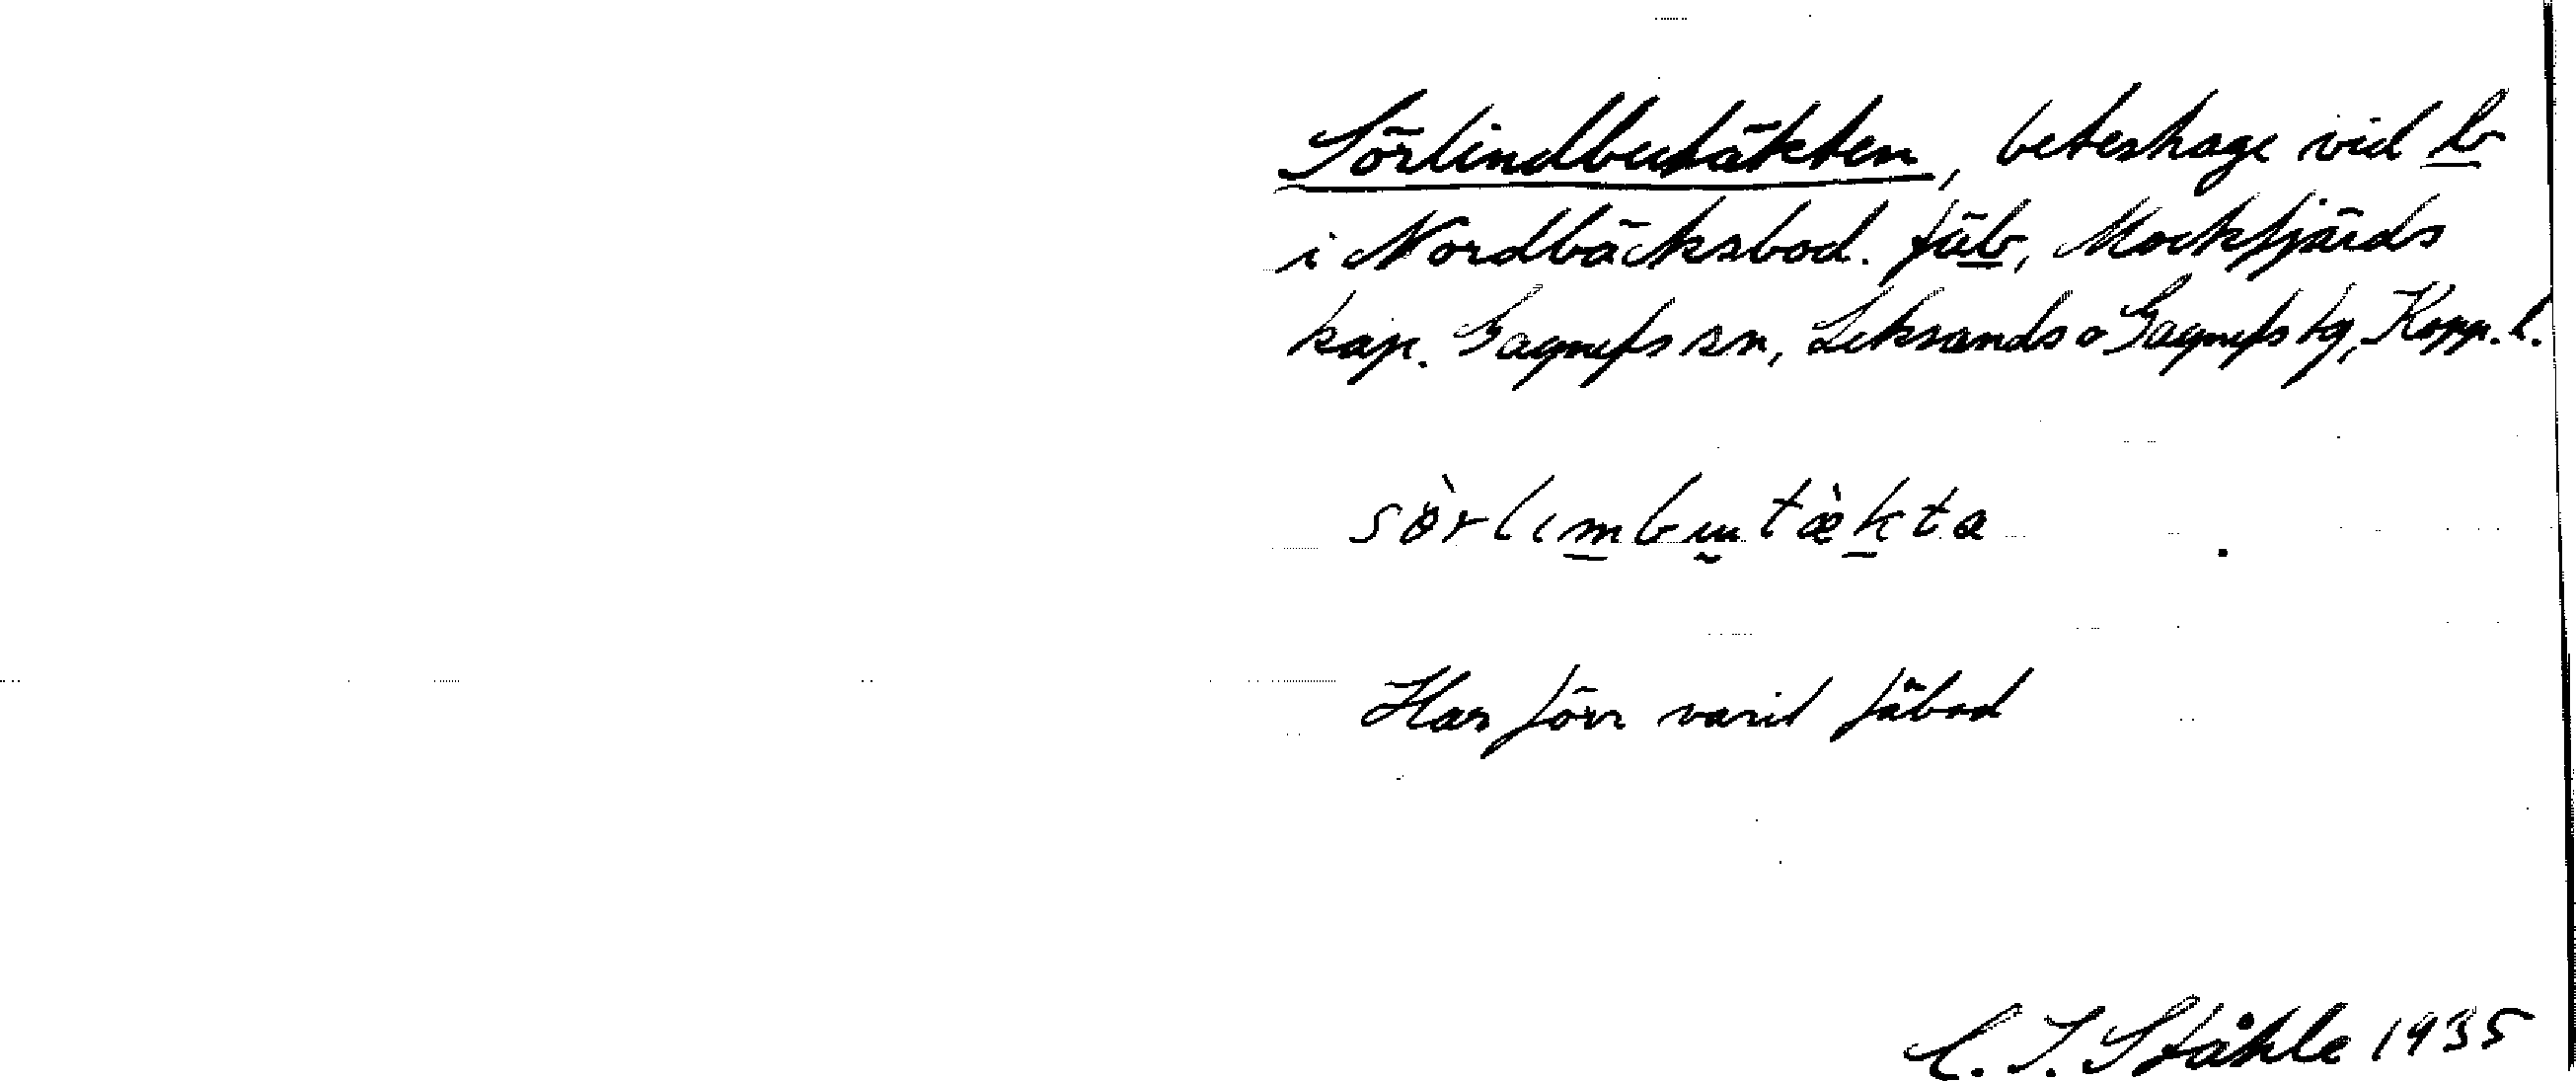 Sörlindbutäkten, beteshage vid b
i Nordbäcksbod. fäb, Mockfjärds
kap. Gagnefs sn, Leksands o Gagnefs tg, Kopp. l.
sörlımbɯtækta
Har förr varit fäbod
C. I. Ståhle 1935